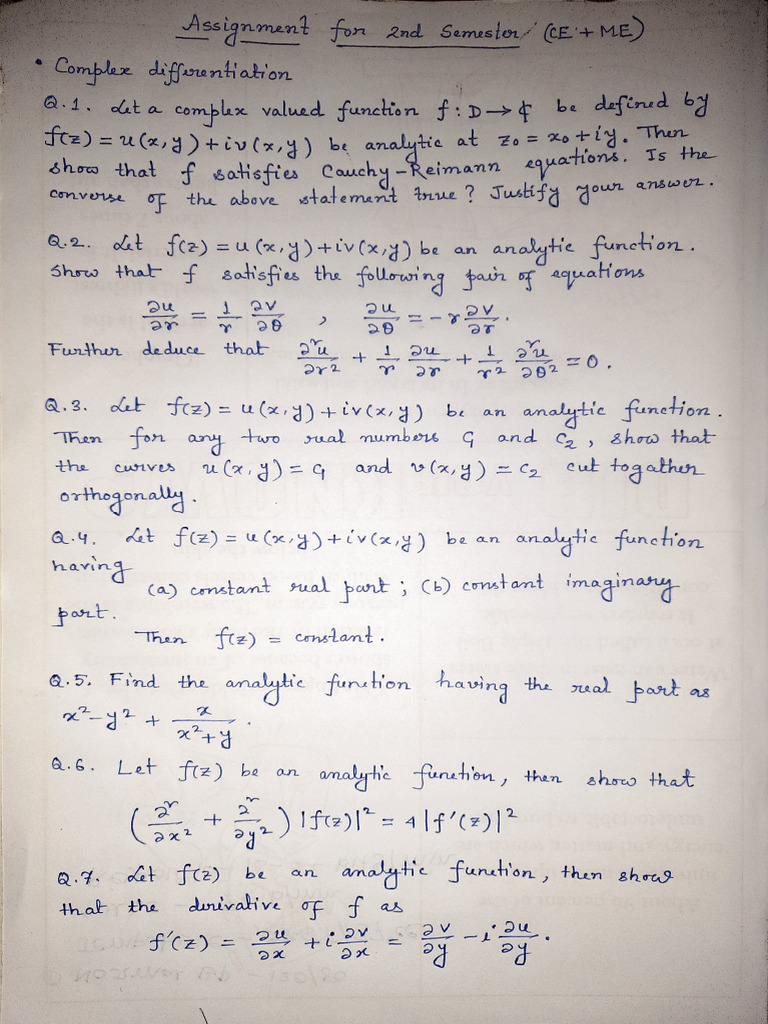 Assignment for 2nd Semester (CE + ME)
• Complex differentiation
Q.1. Let a complex valued function f : D → ₵ be defined by
f(z) = u(x, y) + iv(x, y) be analytic at z₀ = x₀ + iy. Then
show that f satisfies Cauchy-Reimann equations. Is the
converse of the above statement true? Justify your answer.
Q.2. Let f(z) = u(x, y) + iv(x, y) be an analytic function.
Show that f satisfies the following pair of equations
∂u/∂r = 1/r ∂v/∂θ , ∂u/∂θ = -r ∂v/∂r.
Further deduce that ∂²u/∂r² + 1/r ∂u/∂r + 1/r² ∂²u/∂θ² = 0.
Q.3. Let f(z) = u(x, y) + iv(x, y) be an analytic function.
Then for any two real numbers c₁ and c₂, show that
the curves u(x, y) = c₁ and v(x, y) = c₂ cut togather
orthogonally.
Q.4. Let f(z) = u(x, y) + iv(x, y) be an analytic function
having
(a) constant real part ; (b) constant imaginary
part.
Then f(z) = constant.
Q.5. Find the analytic function having the real part as
x² - y² + x/(x² + y).
Q.6. Let f(z) be an analytic function, then show that
(∂²/∂x² + ∂²/∂y²) |f(z)|² = 4 |f'(z)|²
Q.7. Let f(z) be an analytic function, then show
that the derivative of f as
f'(z) = ∂u/∂x + i ∂v/∂x = ∂v/∂y - i ∂u/∂y.